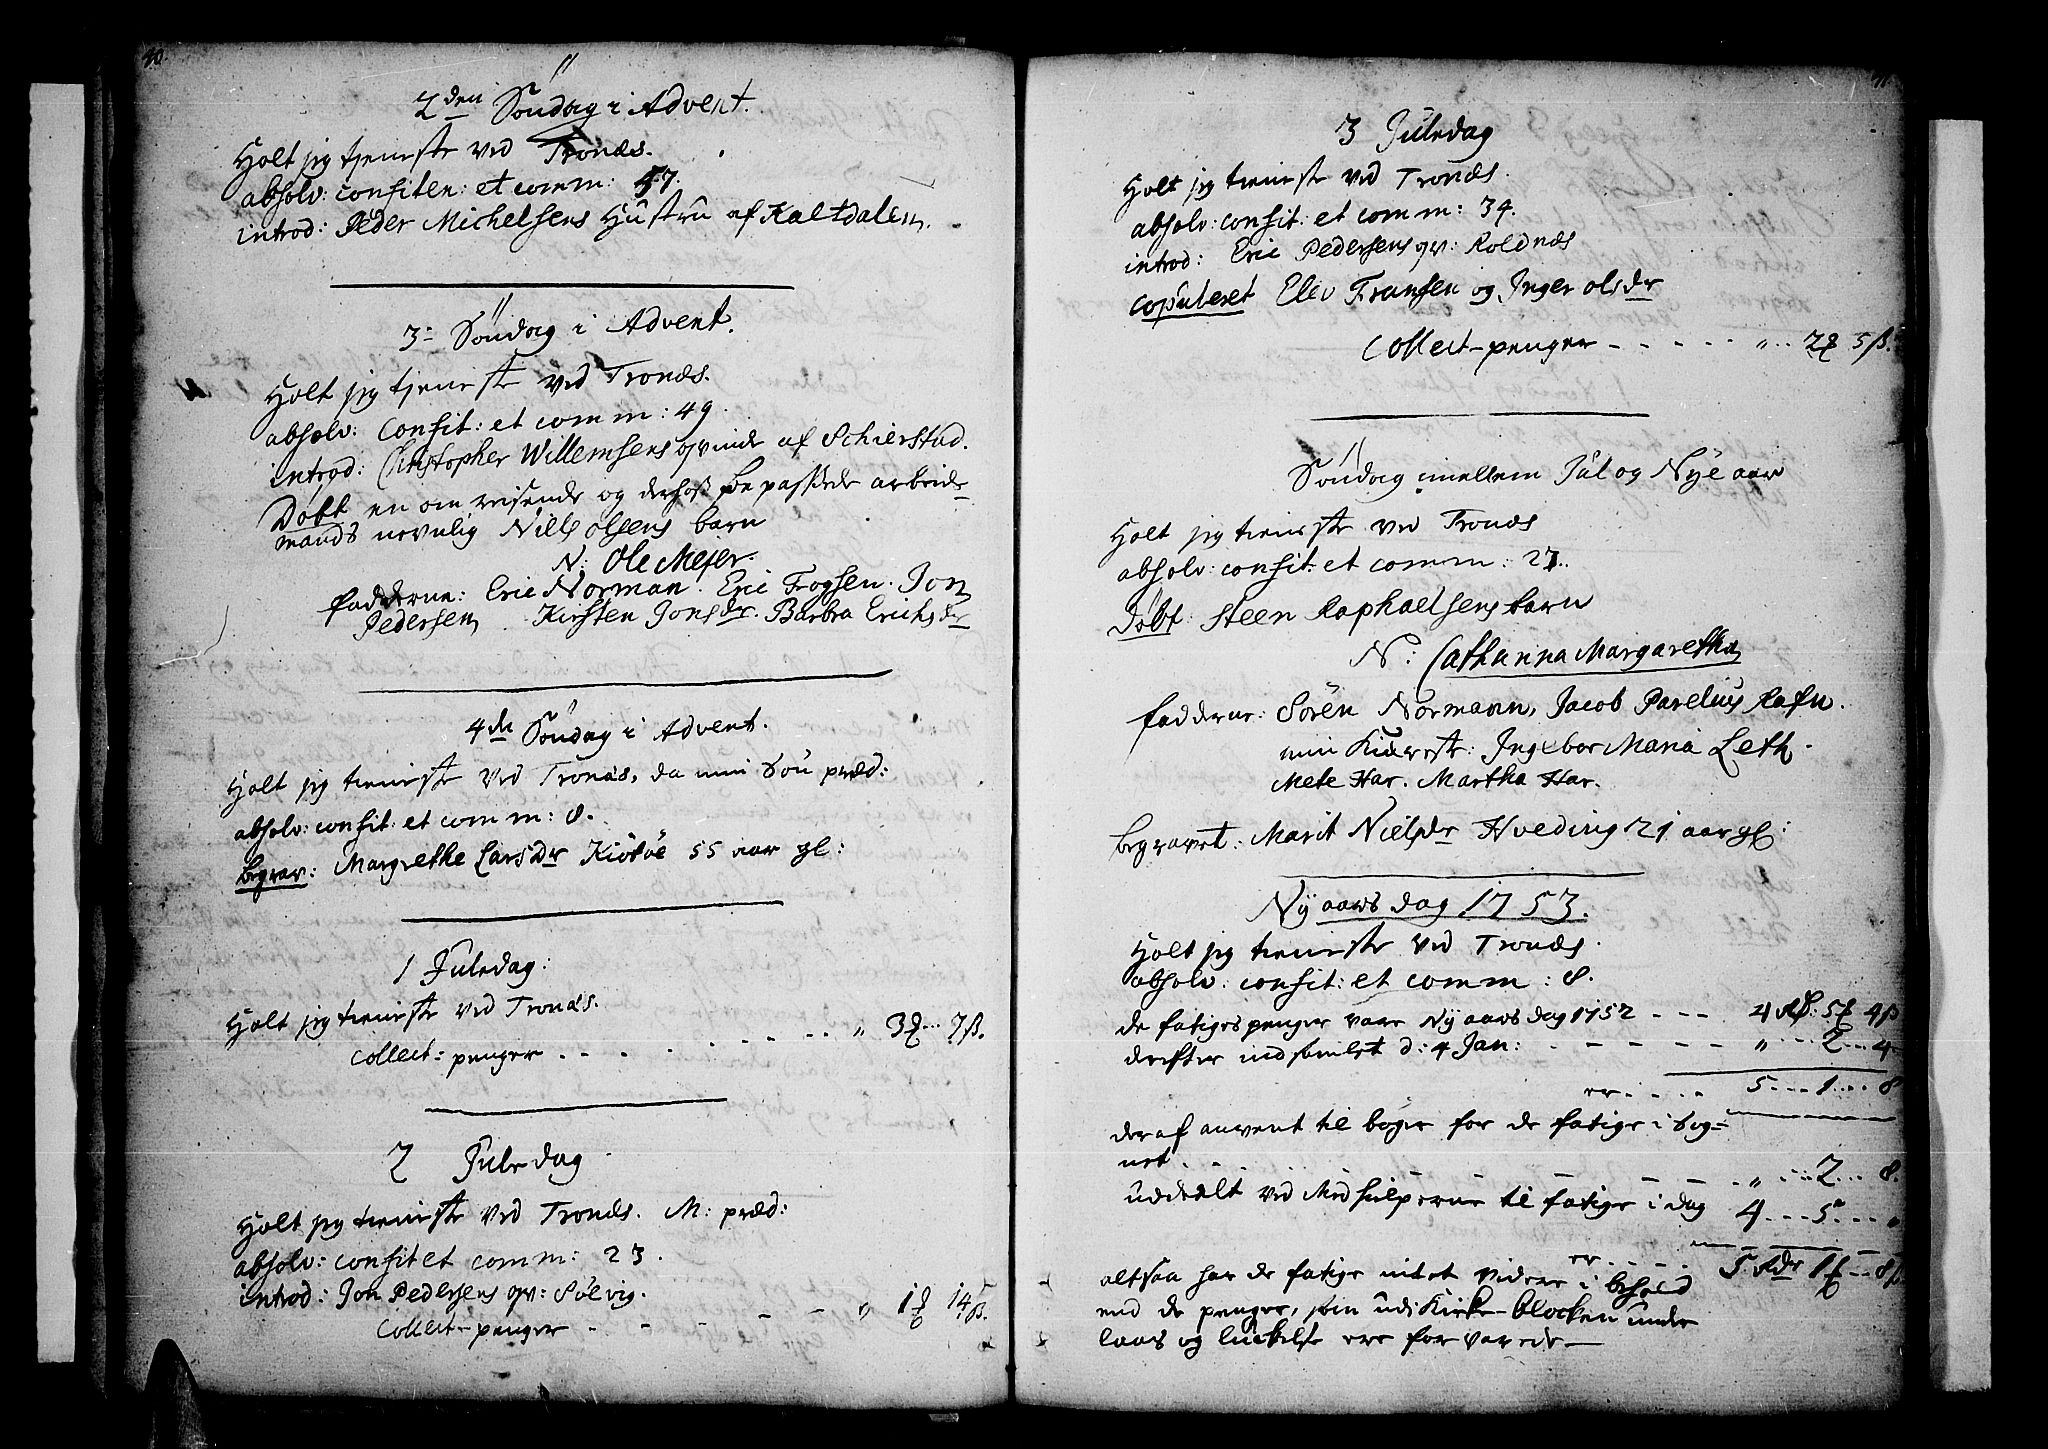 40.
2den Söndag i Advent.
Holt jeg tjeniste ved Tronæs.
absolv: confiten: et comm: 57.
introd: Peder Michelsens Hustru af Kaltdalen.
3= Söndag i Advent.
Holt jeg tjeniste ved Tronæs.
absolv: Confit: et comm: 49.
introd: Christopher Willemsens qvinde af Schierstad.
Döbt en om reisende og derhos be passede arbeids=
mands nevnlig Niels olsens barn
N: Ole Mejer.
fadderne: Eric Norman. Eric Frogsen. Jon
Pedersen Kirsten Jonsdr. Barbra Erichsdr
4de Söndag i Advent.
Holt jeg tieniste ved Tronæs, da min Sön præd:
absolv: confit: et comm: 8.
begrav: Margrethe Larsdr Kiötöe 55 aar gl:
1 Juledag:
Holt jeg tieniste ved Tronæs.
collect=penger . . . . . . . . . . " 3 ... 7 ß.
2 Juledag
Holt jeg tieniste ved Tronæs. M: præd:
absolv: confit et comm: 23.
introd: Jon Pedersens qv: Sölvig.
Collect-penger - - - - - " 1 14 ß.
3 Juledag
Holt jeg tieniste ved Tronæs.
absolv: confit: et comm: 34.
introd: Eric Pedersens qv: Roldnæs
copuleret Elev Fransen og Inger olsdr
Collect-penger - - - - - " .. 2 5 ß.
Söndag imellem Jul og Nye aar
Holt jeg tieniste ved Tronæs
absolv: confit: et comm: 27.
Döbt: Steen Raphaelsens barn
N: Catharina Margaretha
fadderne: Sören Normann, Jacob Parelius Rafn.
min Kiæreste: Ingebor Maria Leth.
Mete Har. Martha Har.
begravet: Marit Nielsdr Hveding 21 aar gl:
Ny aars dag 1753.
Holt jeg tieniste ved Tronæs.
absolv: confit: et comm: 8.
de fatiges penger vaar Ny aars dag 1752 - - - 4 rd: 5 4 ß
derefter indsamlet d: 4 Jan: - - - - - - " ... 2 ... 4.
er . . . . 5 ... 1 ... 8
der af anvent til böger for de fatige i Sog=
net . . . - - - - - - - - " ... 2 ... 8.
uddeelt ved Medhielperne til fatige i dag 4 ... 5 ... "
er . . . . 5 rdr 1 .. 8 ß.
altsaa har de fatige intet videre i behold
end de penger, som udi Kirke-blocken under
laas og luckelse ere forvarede—